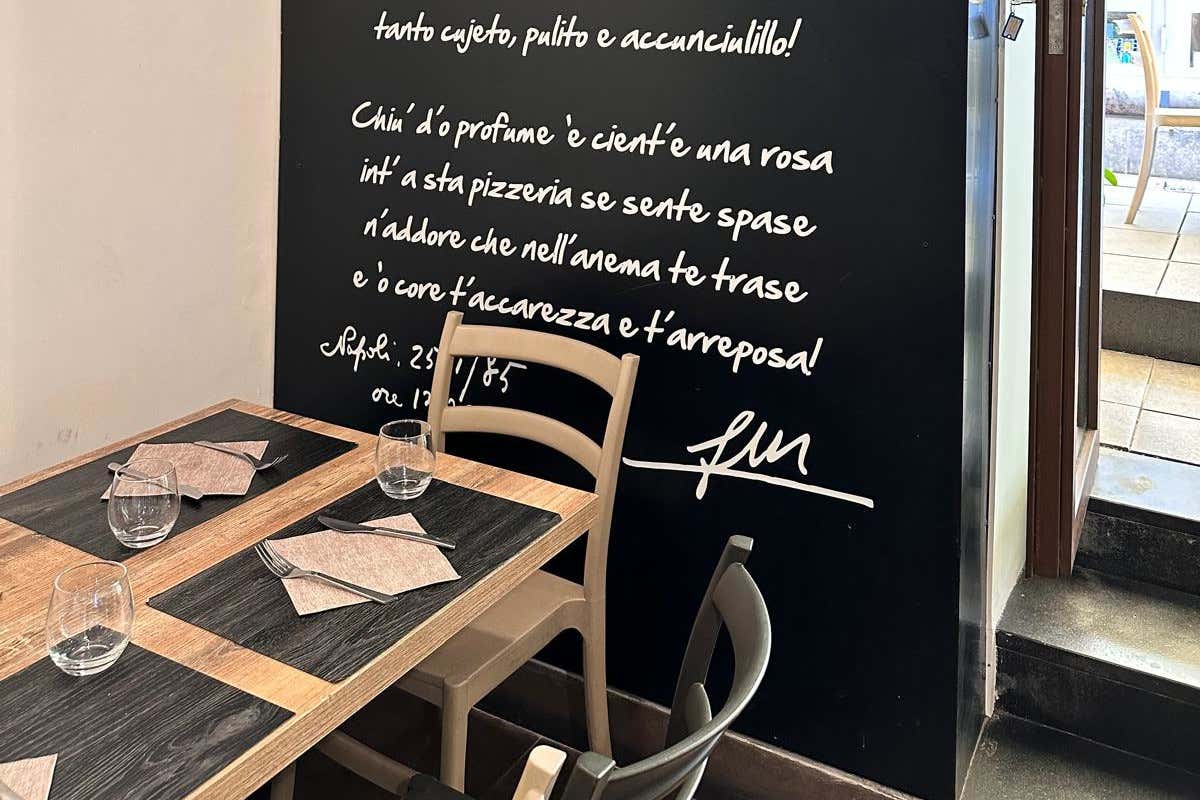 tanto cujeto, pulito e accunciulillo!
Chiu' d'o profume 'e cient'e una rosa
int' a sta pizzeria se sente spase
n'addore che nell'anema te trase
e 'o core t'accarezza e t'arreposa!
Napoli, 25 /85
ore